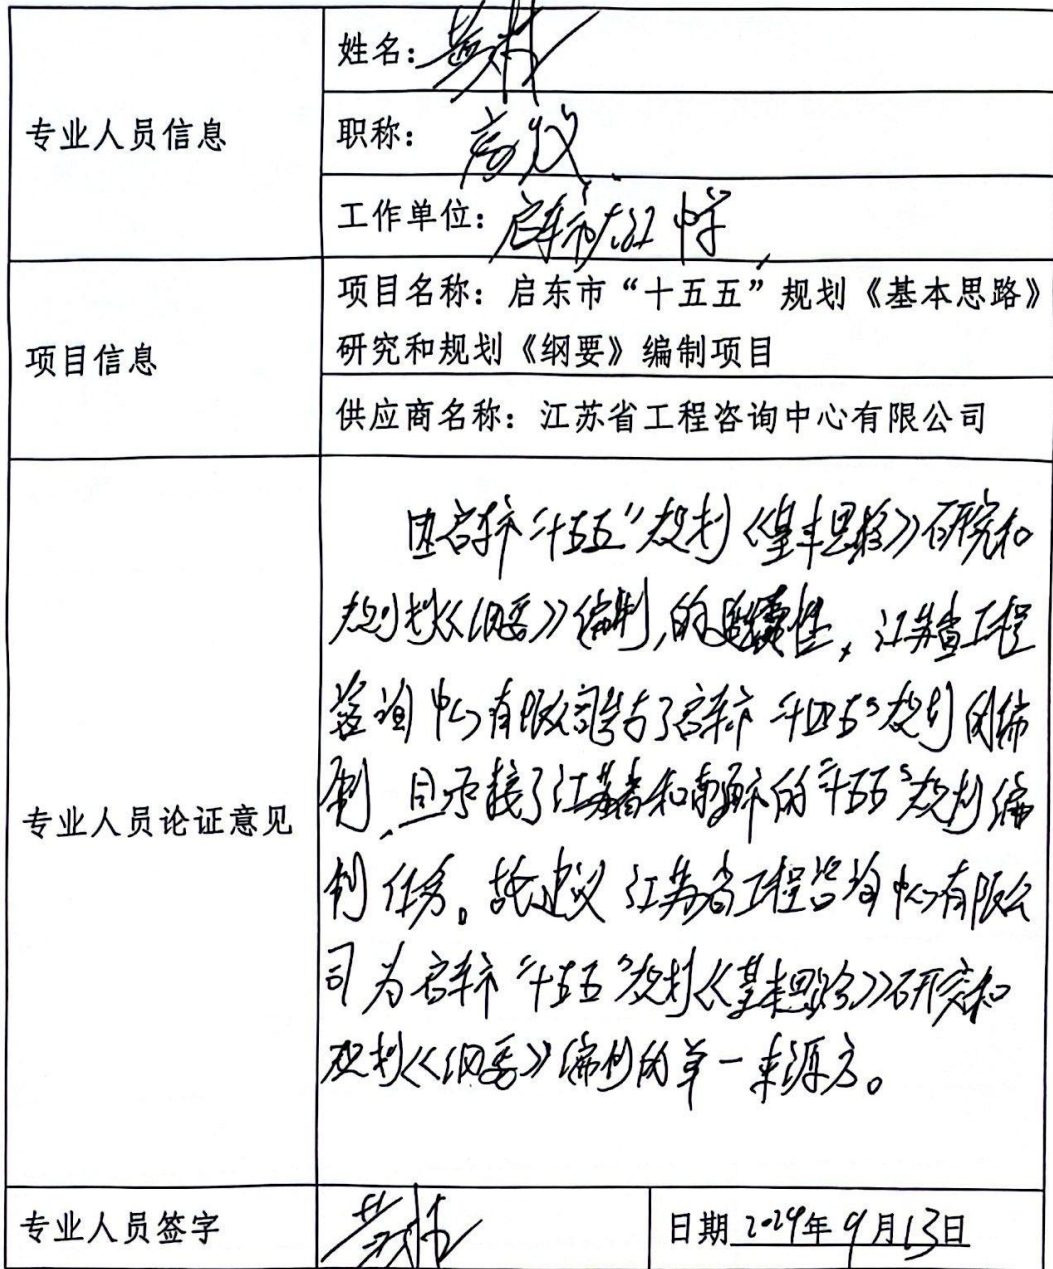 专业人员信息
姓名：
职称：高议
工作单位：启东市大江中学
项目信息
项目名称：启东市“十五五”规划《基本思路》
研究和规划《纲要》编制项目
供应商名称：江苏省工程咨询中心有限公司
专业人员论证意见
因启东市“十五五”规划《基本思路》研究和
规划《纲要》编制，的连续性，江苏省工程
咨询中心有限公司参与了启东市“十四五”规划的编
制，且承接了江苏省和南通市的“十五五”规划编
制任务。故建议江苏省工程咨询中心有限公
司为启东市“十五五”规划《基本思路》研究和
规划《纲要》编制的单一来源方。
专业人员签字
日期 2024年9月13日